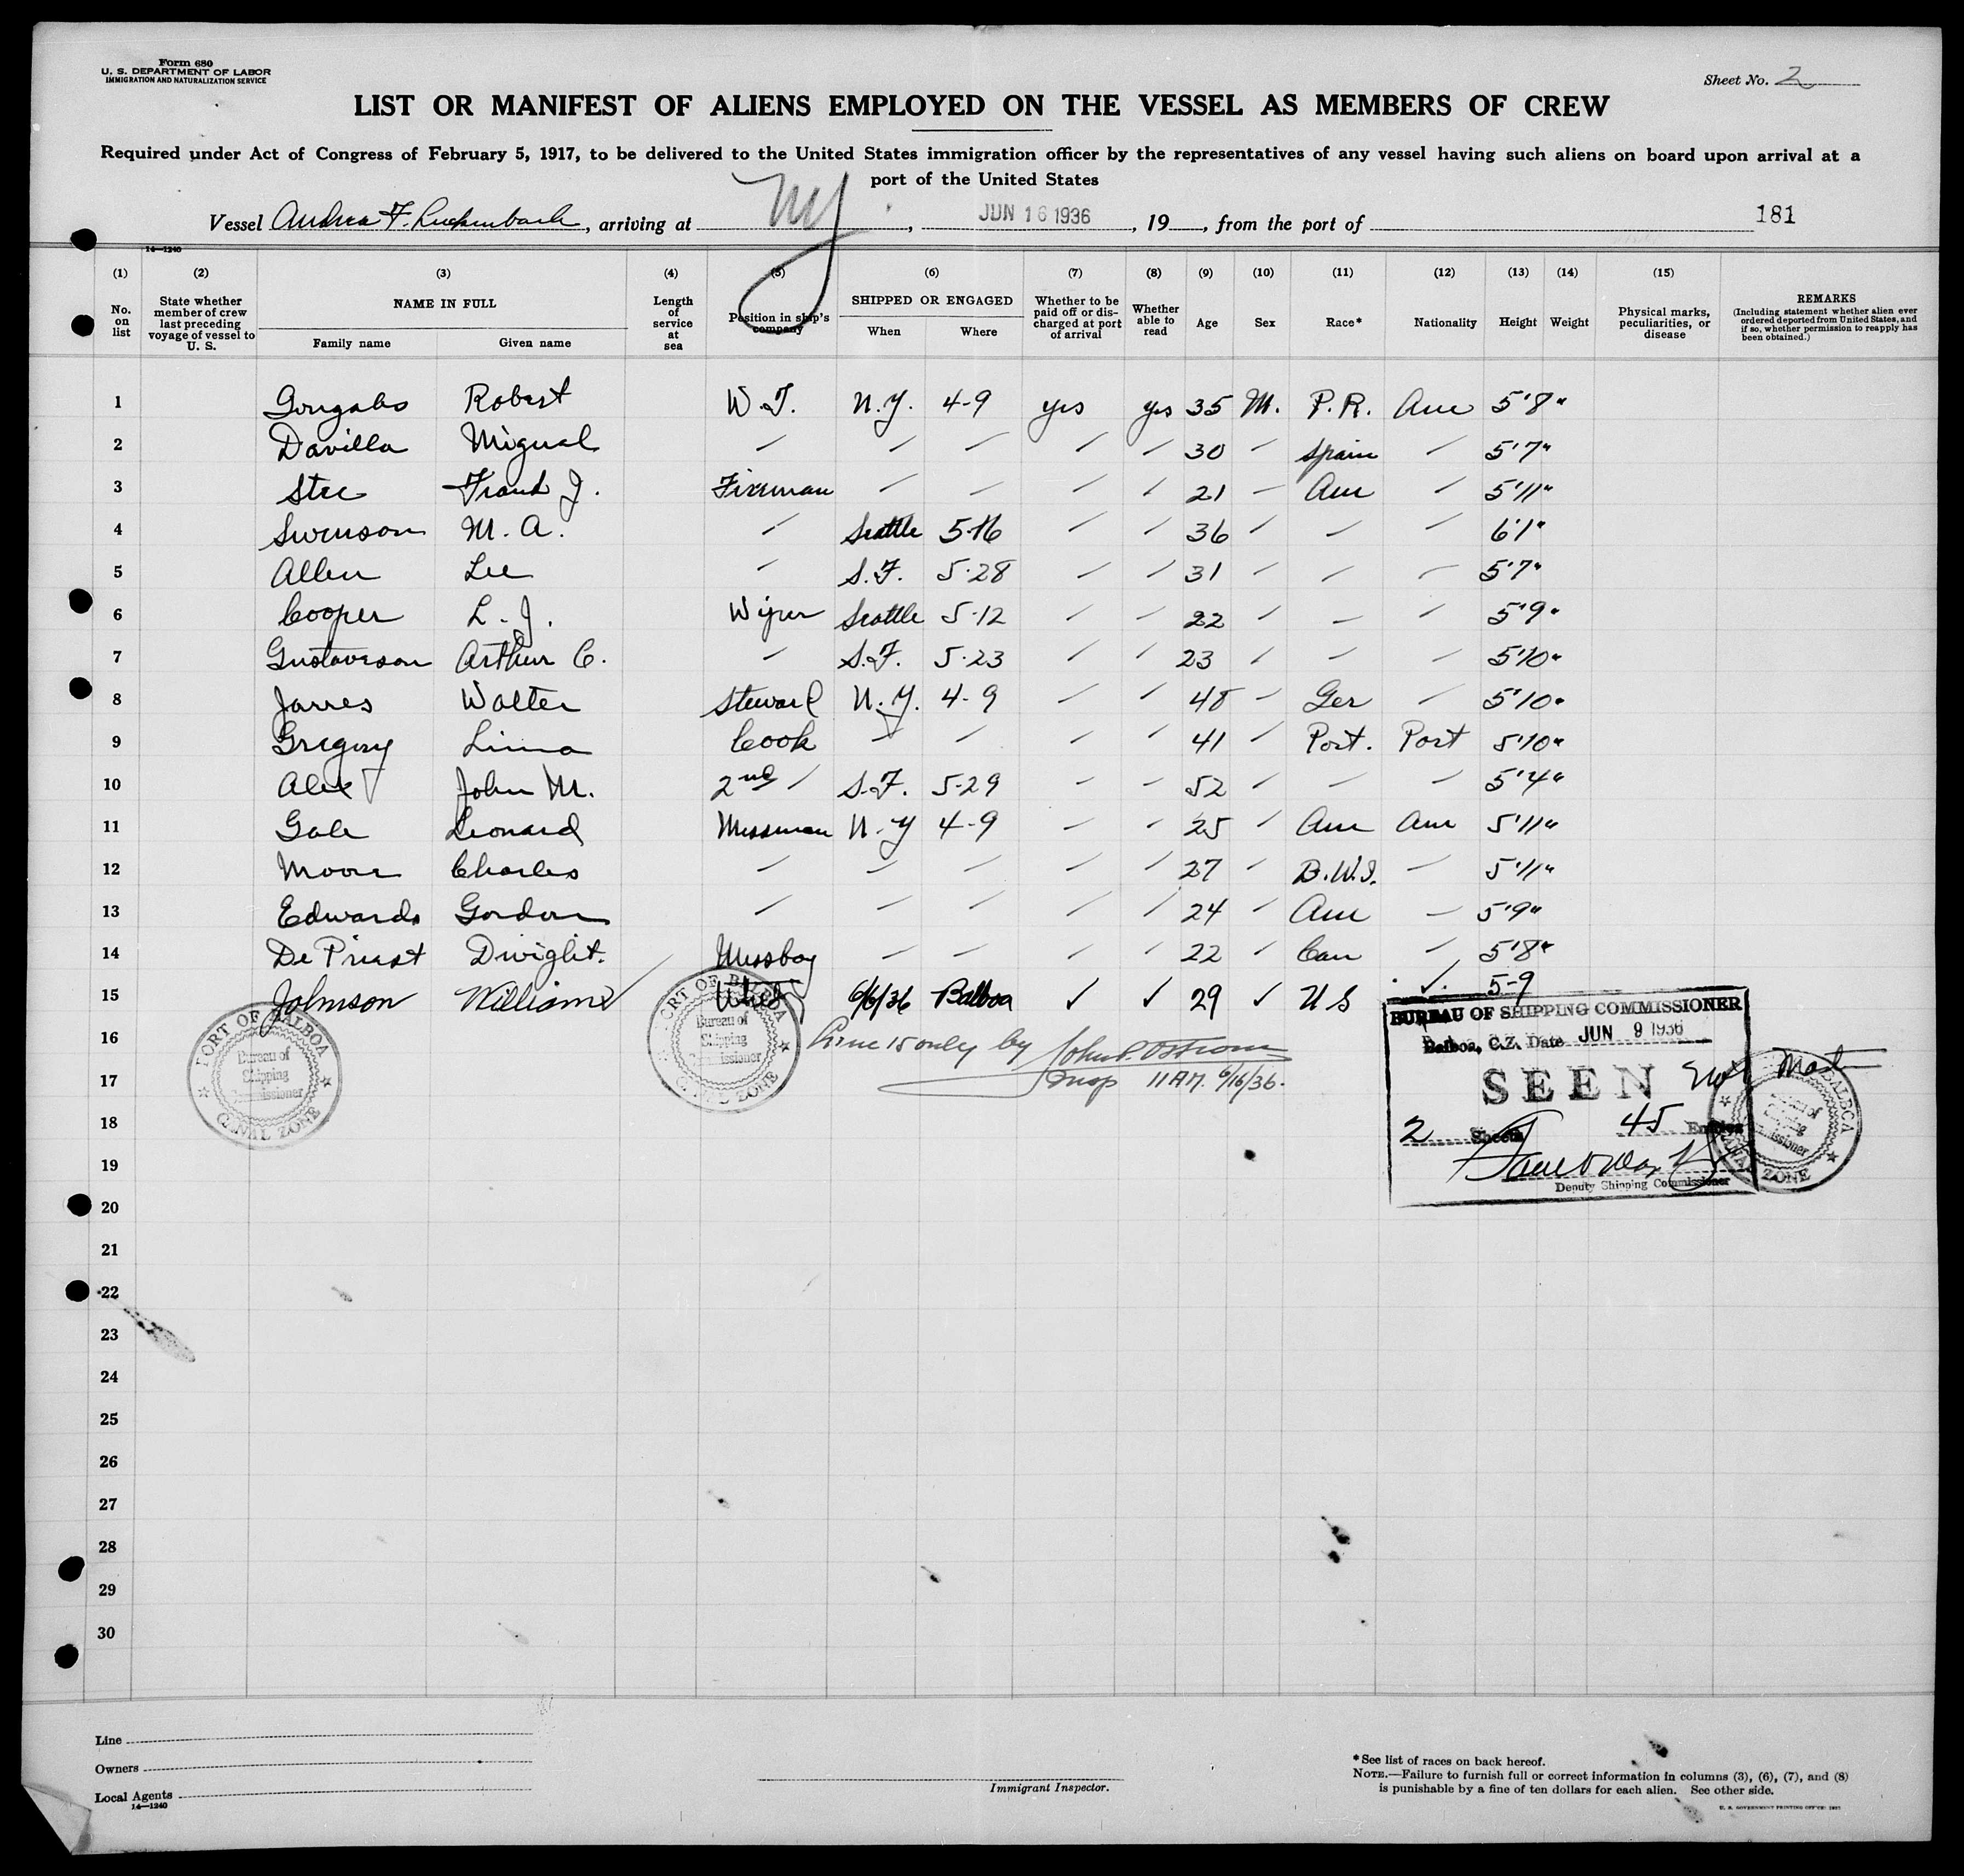 Form 680
U. S. DEPARTMENT OF LABOR
IMMIGRATION AND NATURALIZATION SERVICE
Sheet No. 2
LIST OR MANIFEST OF ALIENS EMPLOYED ON THE VESSEL AS MEMBERS OF CREW
Required under Act of Congress of February 5, 1917, to be delivered to the United States immigration officer by the representatives of any vessel having such aliens on board upon arrival at a
port of the United States
Vessel Andrea F. Luckenbach, arriving at NY, JUN 16 1936, 19, from the port of 181
14—1240
(1) (2) (3) (4) (5) (6) (7) (8) (9) (10) (11) (12) (13) (14) (15)
No. on list
State whether member of crew last preceding voyage of vessel to U. S.
NAME IN FULL
Family name Given name
Length of service at sea
Position in ship's company
SHIPPED OR ENGAGED
When Where
Whether to be paid off or discharged at port of arrival
Whether able to read
Age Sex Race* Nationality Height Weight
Physical marks, peculiarities, or disease
REMARKS
(Including statement whether alien ever ordered deported from United States, and if so, whether permission to reapply has been obtained.)
1 Gonzales Robert W.T. N.Y. 4-9 yes yes 35 M. P.R. Am 5'8"
2 Davilla Migual 30 Spain 5'7"
3 Stec Frank J. Fireman 21 Am 5'11"
4 Swenson M. A. Seattle 5-16 36 6'1"
5 Allen Lee S.F. 5-28 31 5'7"
6 Cooper L. J. Wiper Seattle 5-12 22 5'9"
7 Gustaveson Arthur C. S.F. 5-23 23 5'10"
8 Walter Steward N.Y. 4-9 48 Ger 5'10"
9 Gregory Lima Cook 41 Port. Port 5'10"
10 Alex John M. 2nd S.F. 5-29 52 5'4"
11 Gale Leonard Messman N.Y 4-9 25 Am Am 5'11"
12 Moore Charles 27 B.W.I. 5'11"
13 Edwards Gordon 24 Am 5'9"
14 De Priest Dwight. Messboy 22 Can 5'8"
15 Johnson William 6/6/36 Balboa ✓ ✓ 29 ✓ U S ✓. 5-9
16
17
18
19
20
21
22
23
24
25
26
27
28
29
30
Line 15 only by John P. Ostrom
Insp 11 AM. 6/16/36.
PORT OF BALBOA
Bureau of
Shipping
Commissioner
CANAL ZONE
PORT OF BALBOA
Bureau of
Shipping
Commissioner
CANAL ZONE
BUREAU OF SHIPPING COMMISSIONER
Balboa, C.Z. Date JUN 9 1936
SEEN
2 Sheets 45 Entries
Deputy Shipping Commissioner
BALBOA
Bureau of
Shipping
Commissioner
CANAL ZONE
Line
Owners
Local Agents
14—1240
Immigrant Inspector.
* See list of races on back hereof.
NOTE.—Failure to furnish full or correct information in columns (3), (6), (7), and (8)
is punishable by a fine of ten dollars for each alien. See other side.
U. S. GOVERNMENT PRINTING OFFICE: